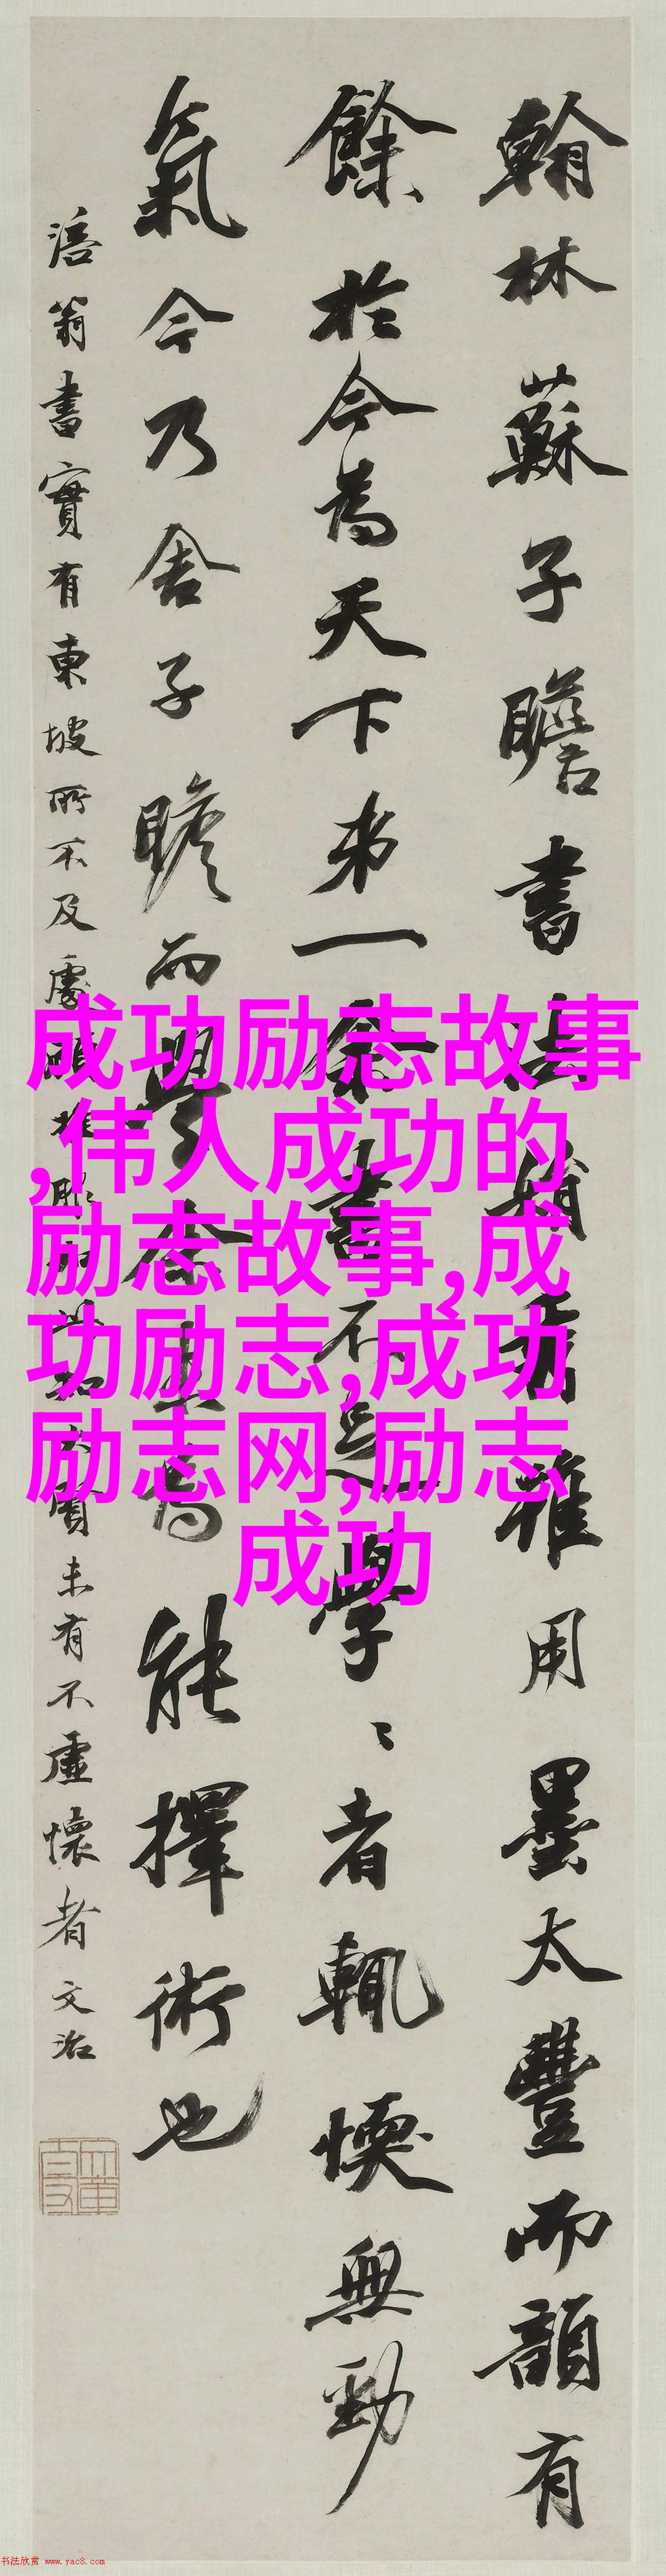 翰林蘇子瞻書法娟秀雖用墨太豐而韻有
餘於今為天下弟一余書不足學〻者輒愞無勁
氣今乃舍子瞻而學余未為能擇術也
涪翁書實有東坡所不及處未有不虛懷者文治
成功励志故事
,伟人成功的
励志故事,成
功励志,成功
励志网,励志
成功
书法欣赏 www.yac8.com